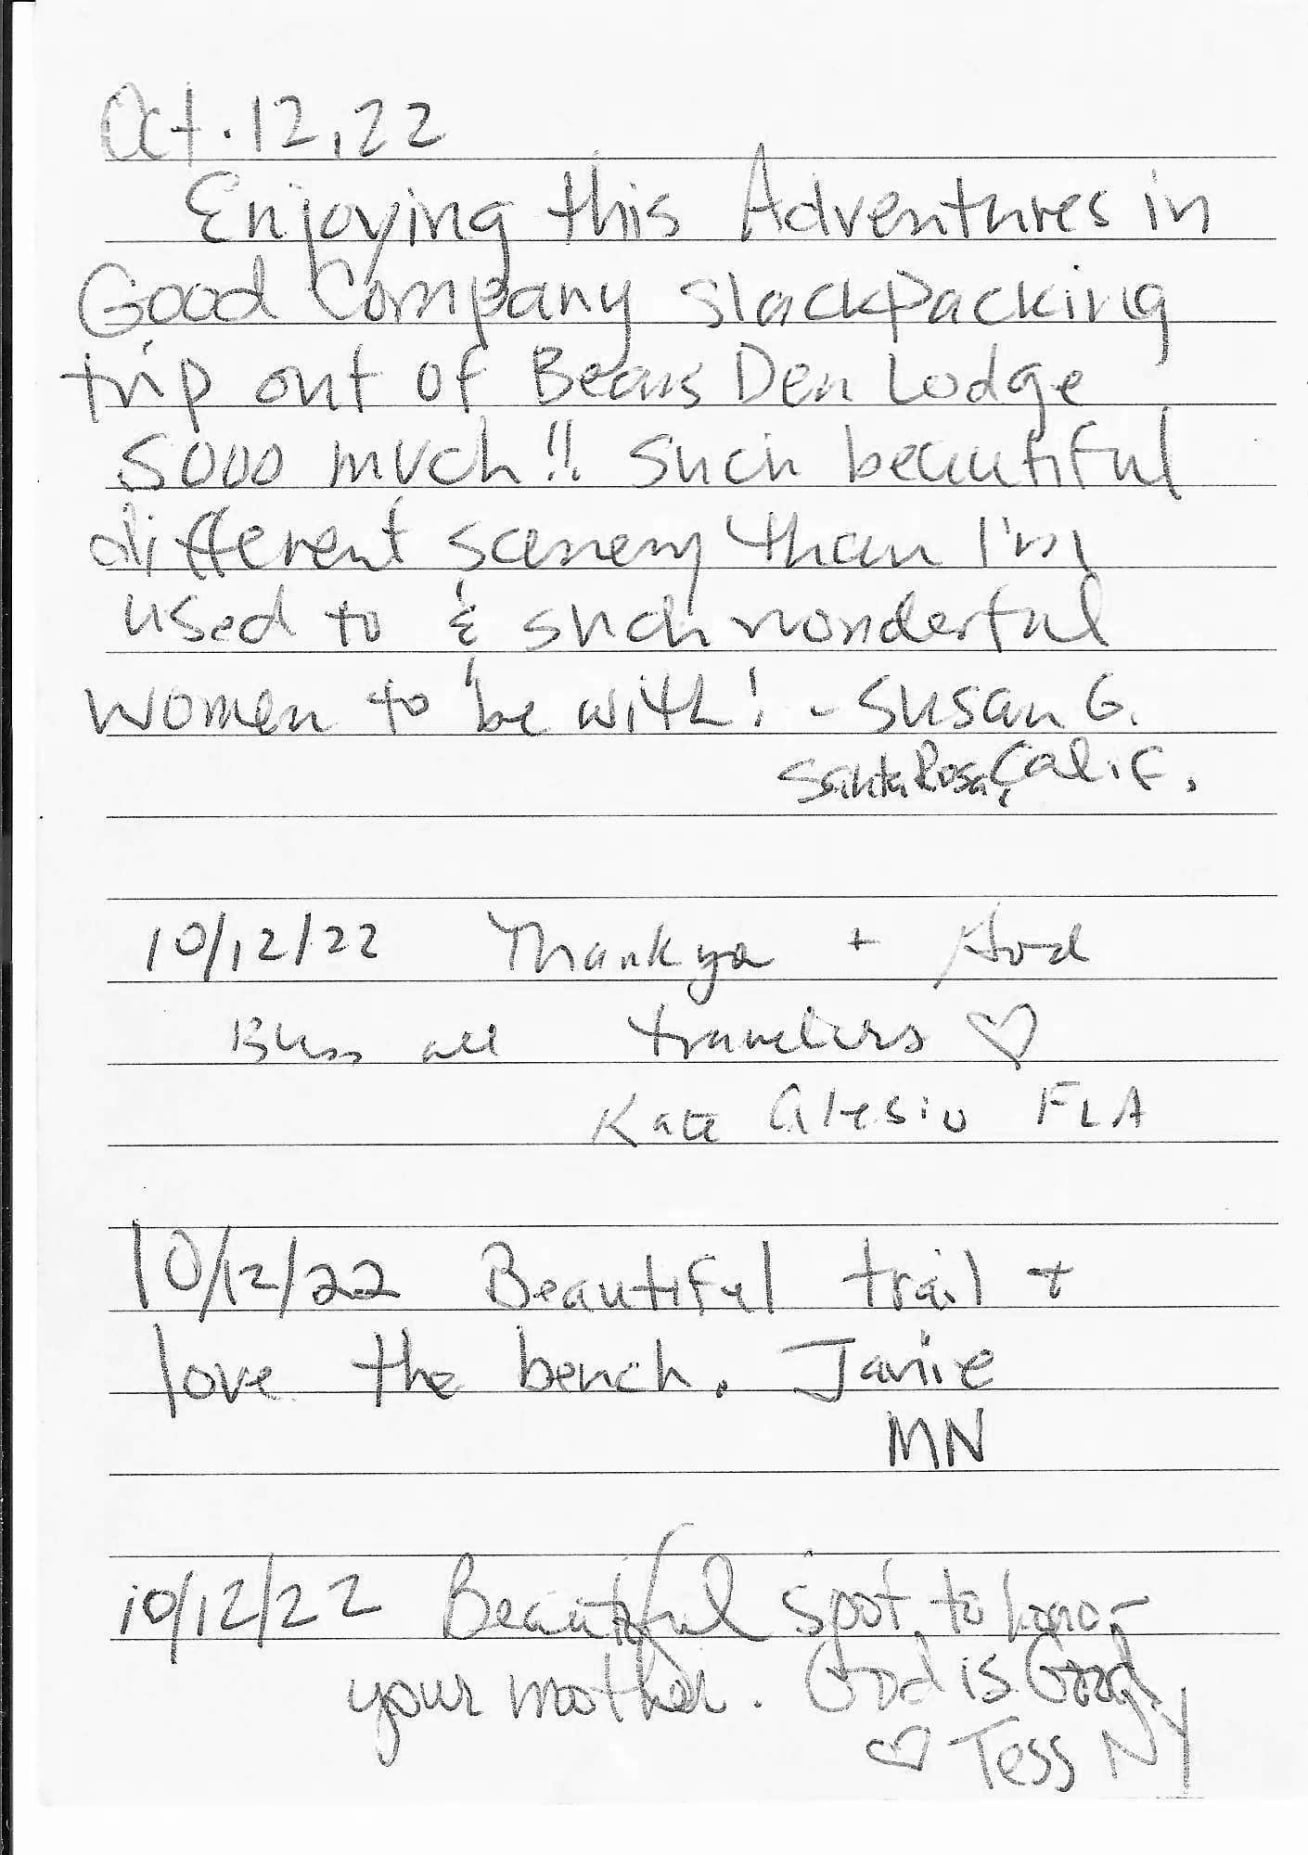 Oct. 12, 22
Enjoying this Adventures in
Good Company slackpacking
trip out of Bears Den Lodge
sooo much!! Such beautiful
different scenery than I'm
used to & such wonderful
women to be with! - Susan G.
Santa Rosa, Calif.
10/12/22 Thank ya + God
Bless all travelers ♡
Kate Alesio FLA
10/12/22 Beautiful trail +
love the bench. Janie
MN
10/12/22 Beautiful spot to honor
your mother. God is Good
♡ Tess NY